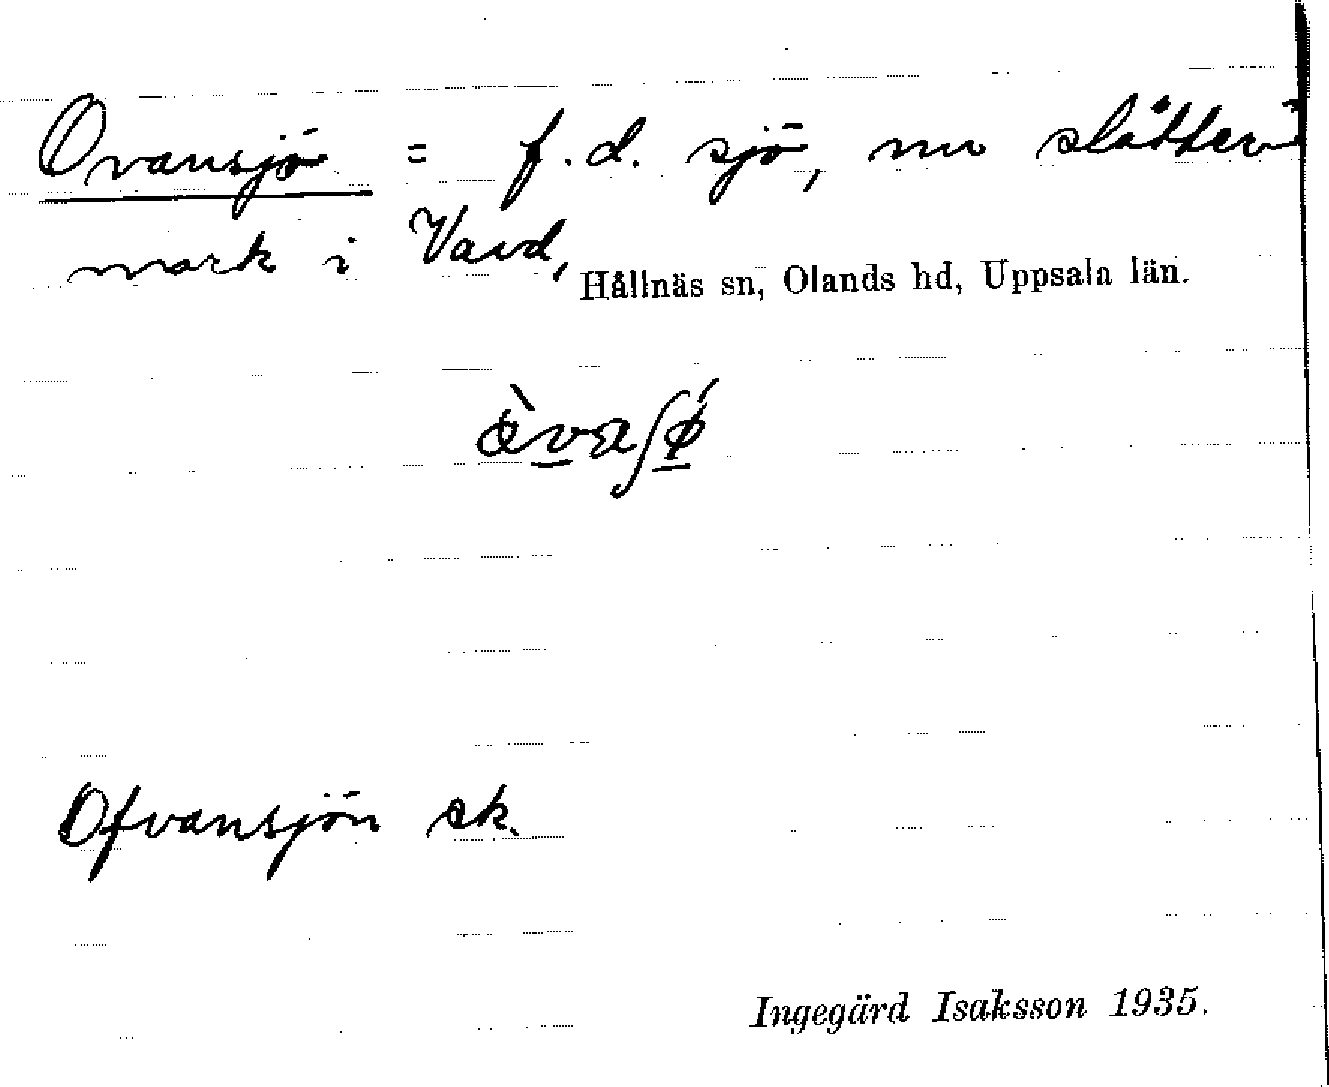 Ovansjö = f.d. sjö, nu slåtter=
mark i Vavd,
Hållnäs sn, Olands hd, Uppsala län.
Ofvansjön sk.
Ingegärd Isaksson 1935.